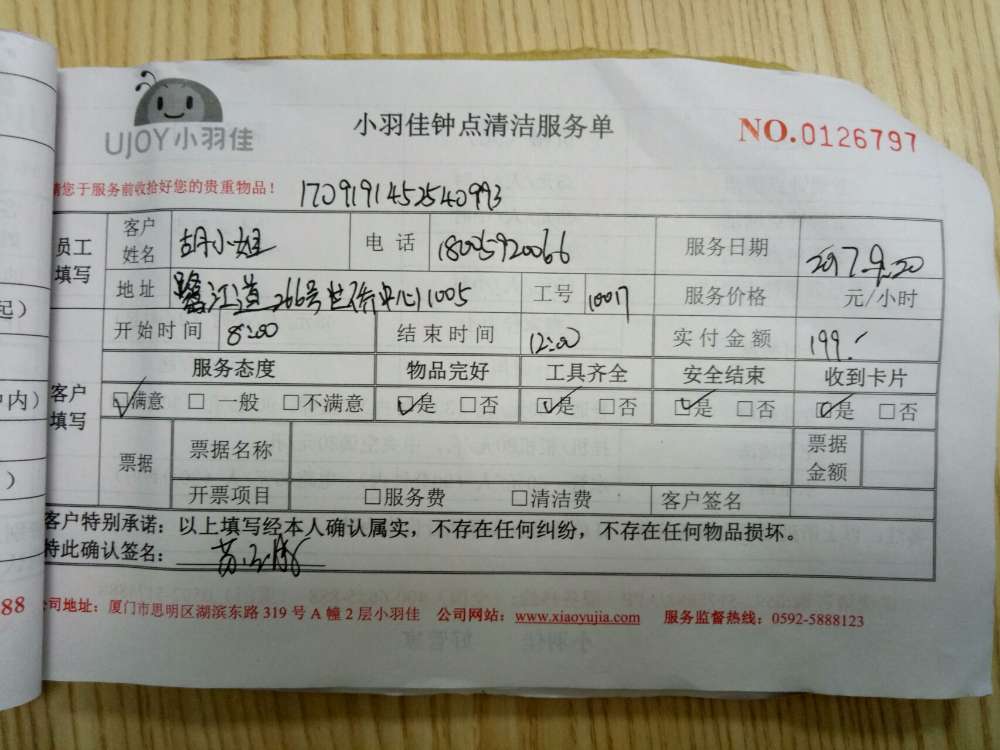 UJOY小羽佳
小羽佳钟点清洁服务单
NO.0126797
请您于服务前收拾好您的贵重物品！
员工填写 客户姓名 胡小姐 电话 18005920066 服务日期 2017.9.20
地址 鹭江道266号 中心11005 工号 10017 服务价格 元/小时
开始时间 8:00 结束时间 12:00 实付金额 199.
客户填写 服务态度 物品完好 工具齐全 安全结束 收到卡片
☑满意 □一般 □不满意 ☑是 □否 ☑是 □否 ☑是 □否 ☑是 □否
票据 票据名称 票据金额
开票项目 □服务费 □清洁费 客户签名
客户特别承诺：以上填写经本人确认属实，不存在任何纠纷，不存在任何物品损坏。
特此确认签名：
公司地址：厦门市思明区湖滨东路 319 号 A 幢 2 层小羽佳 公司网站：www.xiaoyujia.com 服务监督热线：0592-5888123
起）
中内）
）
88